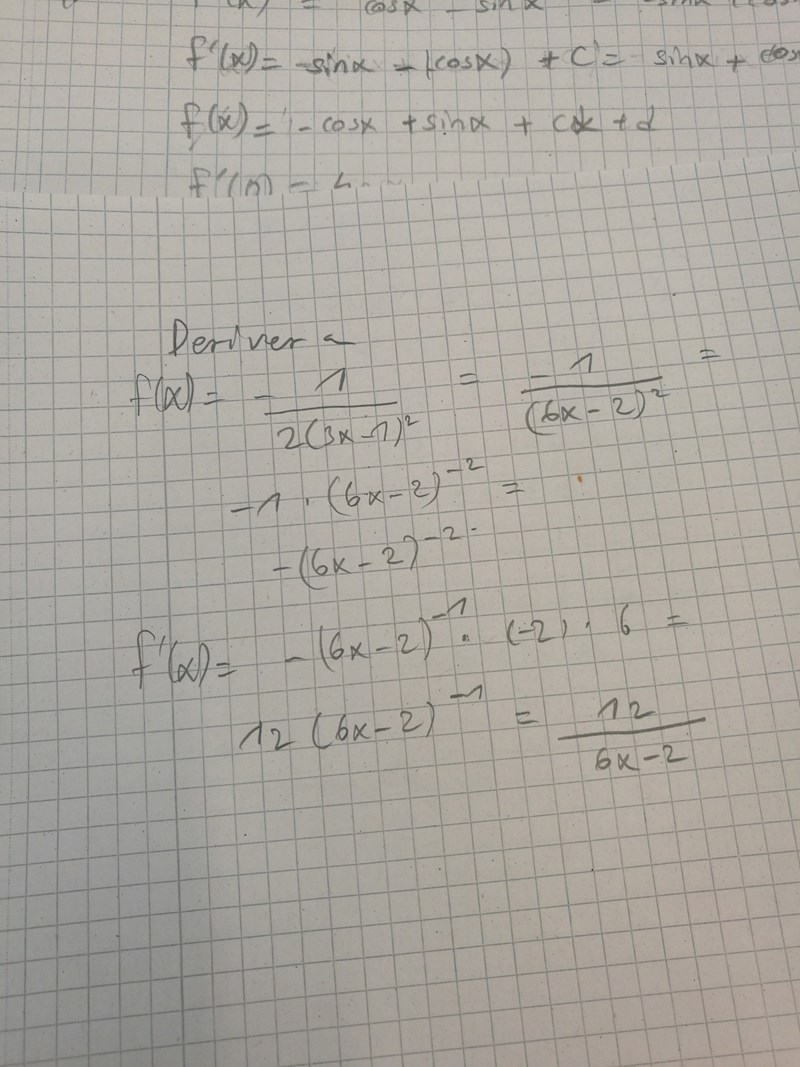 (x) = cosx - sinx
f'(x) = -sinx - (cosx) + C = sinx + cos
f(x) = - cosx + sinx + cx + d
Derivera
f(x) = - 1/(2(3x-1)²) = -1/((6x-2)²) =
-1 · (6x-2)⁻² =
-(6x-2)⁻² ·
f'(x) = -(6x-2)⁻¹ · (-2) · 6 =
12 (6x-2)⁻¹ = 12/(6x-2)